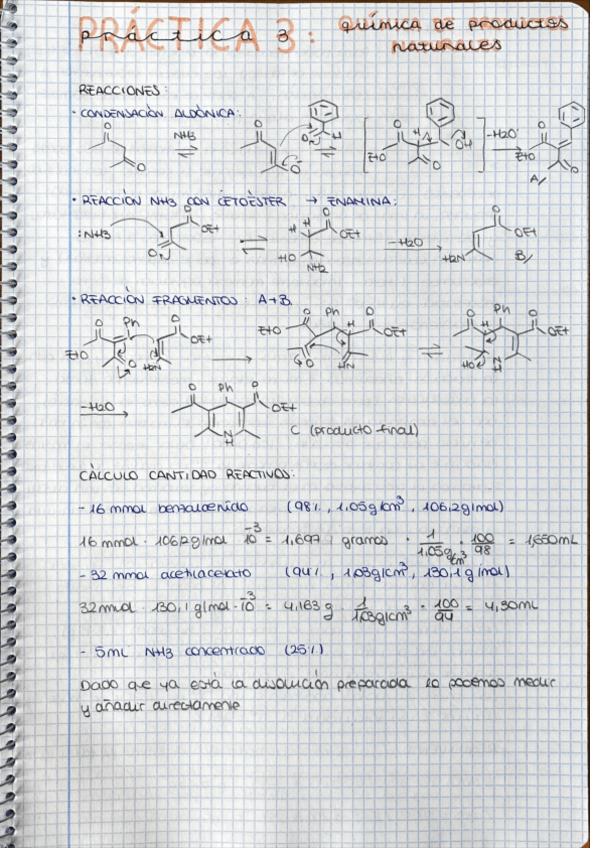 PRÁCTICA 3: química de productos
práctica 3 naturales
REACCIONES:
· CONDENSACIÓN ALDÓNICA:
NH3
-H2O
EtO
OH
A/
· REACCIÓN NH3 CON CETOÉSTER → ENAMINA:
:NH3
OEt
HO
NH2
-H2O
H2N
B/
· REACCIÓN FRAGMENTOS: A+B.
Ph
EtO
OEt
H2N
HN
HO
-H2O
Ph
OEt
N
H
C (producto final)
CÁLCULO CANTIDAD REACTIVOS:
- 16 mmol (98%, 1,05g/cm³, 106,2g/mol)
16 mmol · 106,2g/mol · 10⁻³ = 1,6971 gramos · 1/1,05g/cm³ · 100/98 = 1,650mL
- 32 mmol acetilacetato (94%, 1,03g/cm³, 130,1g/mol)
32mmol · 130,1g/mol · 10⁻³ = 4,163g · 1/1,03g/cm³ · 100/94 = 4,30mL
- 5mL NH3 concentrado (25%)
Dado que ya está la disolución preparada lo podemos medir
y añadir directamente